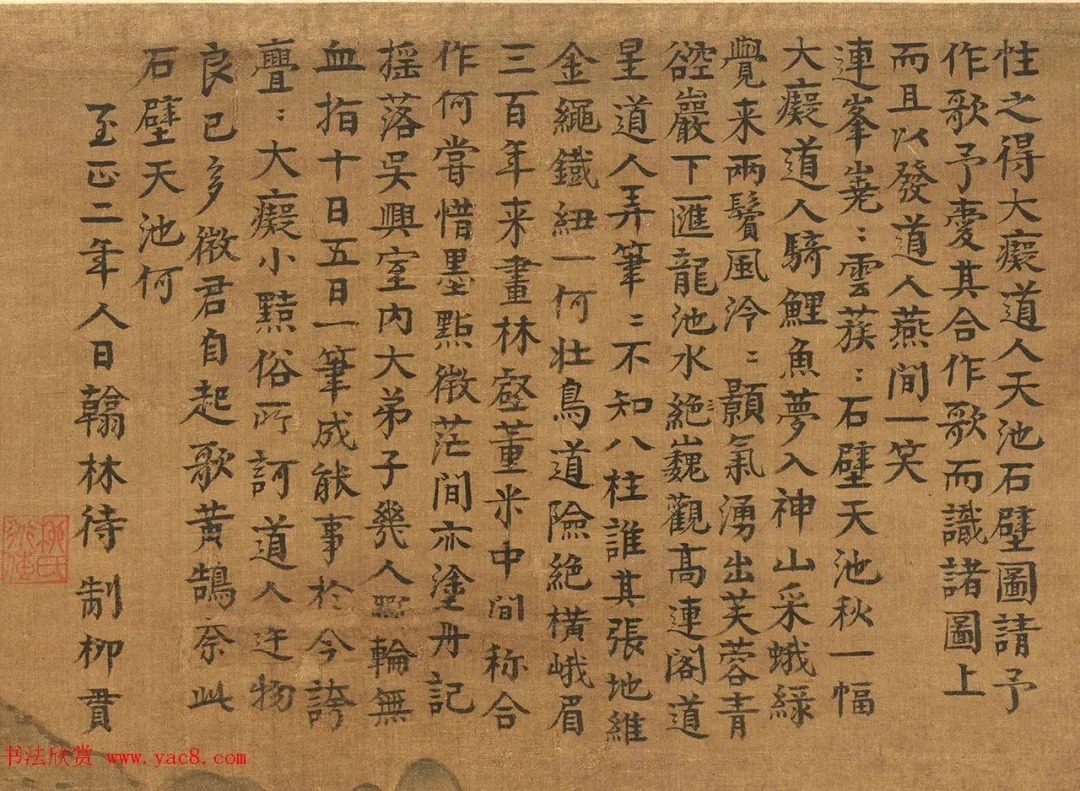 性之得大癡道人天池石壁圖請予
作歌予愛其合作歌而識諸圖上
而且以發道人燕間一笑
連峯嶤〻雲蔟〻石壁天池秋一幅
大癡道人騎鯉魚夢入神山采蛾緑
覺来兩鬢風泠〻顥氣湧出芙蓉青
硿巖下匯龍池水絶巘巍觀高連閣道
星道人弄筆〻不知八柱誰其張地維
金繩鐵紐一何壮鳥道險絶橫峨眉
三百年来畫林壑董米中間称合
作何嘗惜墨點微茫間亦塗丹記
揺落吳興室内大弟子幾人輪無
血指十日五日一筆成能事於今誇
亹〻大癡小黠俗所訶道人迕物
良已多微君自起歌黃鵠奈此
石壁天池何
至正二年人日翰林待制柳貫
柳氏
书法欣赏 www.yac8.com